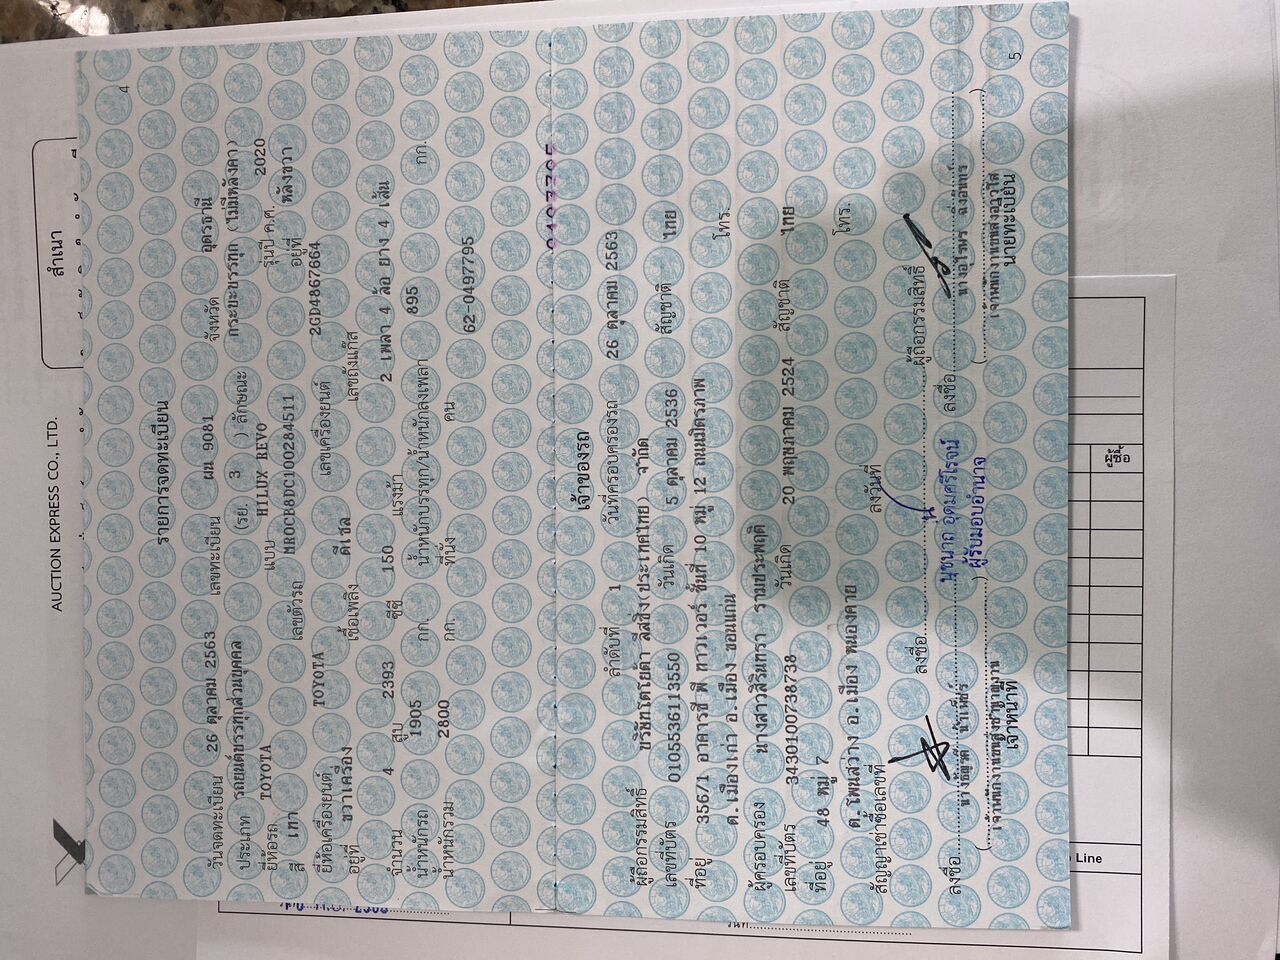 สำเนา
AUCTION EXPRESS CO., LTD.
4
รายการจดทะเบียน
วันจดทะเบียน 26 ตุลาคม 2563 เลขทะเบียน ผน 9081 จังหวัด อุดรธานี
ประเภท รถยนต์บรรทุกส่วนบุคคล (รย. 3 ) ลักษณะ กระบะบรรทุก (ไม่มีหลังคา)
ยี่ห้อรถ TOYOTA แบบ HILUX REVO รุ่นปี ค.ศ. 2020
สี เทา เลขตัวรถ MR0CB8DC100284511 อยู่ที่ หลังขวา
ยี่ห้อเครื่องยนต์ TOYOTA เลขเครื่องยนต์ 2GD4867664
อยู่ที่ ขวาเครื่อง เชื้อเพลิง ดีเซล เลขถังแก๊ส
จำนวน 4 สูบ 2393 ซีซี 150 แรงม้า 2 เพลา 4 ล้อ ยาง 4 เส้น
น้ำหนักรถ 1905 กก. น้ำหนักบรรทุก/น้ำหนักลงเพลา 895 กก.
น้ำหนักรวม 2800 กก. ที่นั่ง คน 62-0497795
เจ้าของรถ
ลำดับที่ 1 วันที่ครอบครองรถ 26 ตุลาคม 2563
ผู้ถือกรรมสิทธิ์ บริษัทโตโยต้า ลีสซิ่ง(ประเทศไทย) จำกัด
เลขที่บัตร 0105536113550 วันเกิด 5 ตุลาคม 2536 สัญชาติ ไทย
ที่อยู่ 356/1 อาคารซี พี ทาวเวอร์ ชั้นที่ 10 หมู่ 12 ถนนมิตรภาพ
ต.เมืองเก่า อ.เมือง ขอนแก่น โทร.
ผู้ครอบครอง นางสาวสิรินทรา รามประพฤติ
เลขที่บัตร 3430100738738 วันเกิด 20 พฤษภาคม 2524 สัญชาติ ไทย
ที่อยู่ 48 หมู่ 7
ต.โพนสว่าง อ.เมือง หนองคาย โทร.
สัญญาเช่าซื้อเลขที่ ลงวันที่
ลงชื่อ ผู้ถือกรรมสิทธิ์
นุชนาถ อุดมศรีโรจน์
ผู้รับมอบอำนาจ
ลงชื่อ ลงชื่อ
เจ้าหน้าที่ นายทะเบียน
5
ผู้ซื้อ
Line